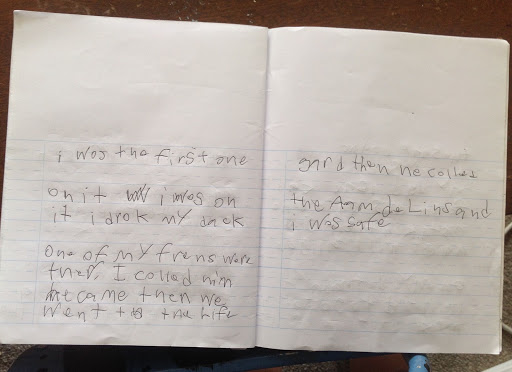 i wos the first one
on it i wos on
it i drok my back
One of my frens were
ther, I colled him
he came then we
went to the life
and then he colled
the Aam de Lins and
i was safe